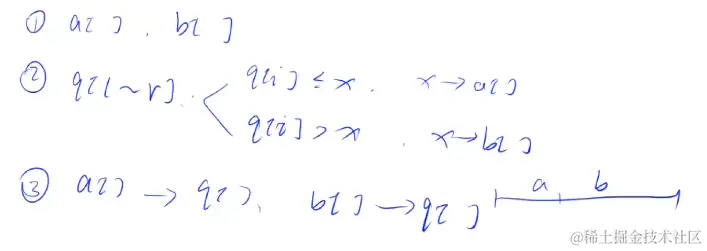 ① a[ ] , b[ ]
② q[l ~ r]
q[i] ≤ x . x → a[ ]
q[i] > x . x → b[ ]
③ a[ ] → q[ ], b[ ] → q[ ] a b
@稀土掘金技术社区